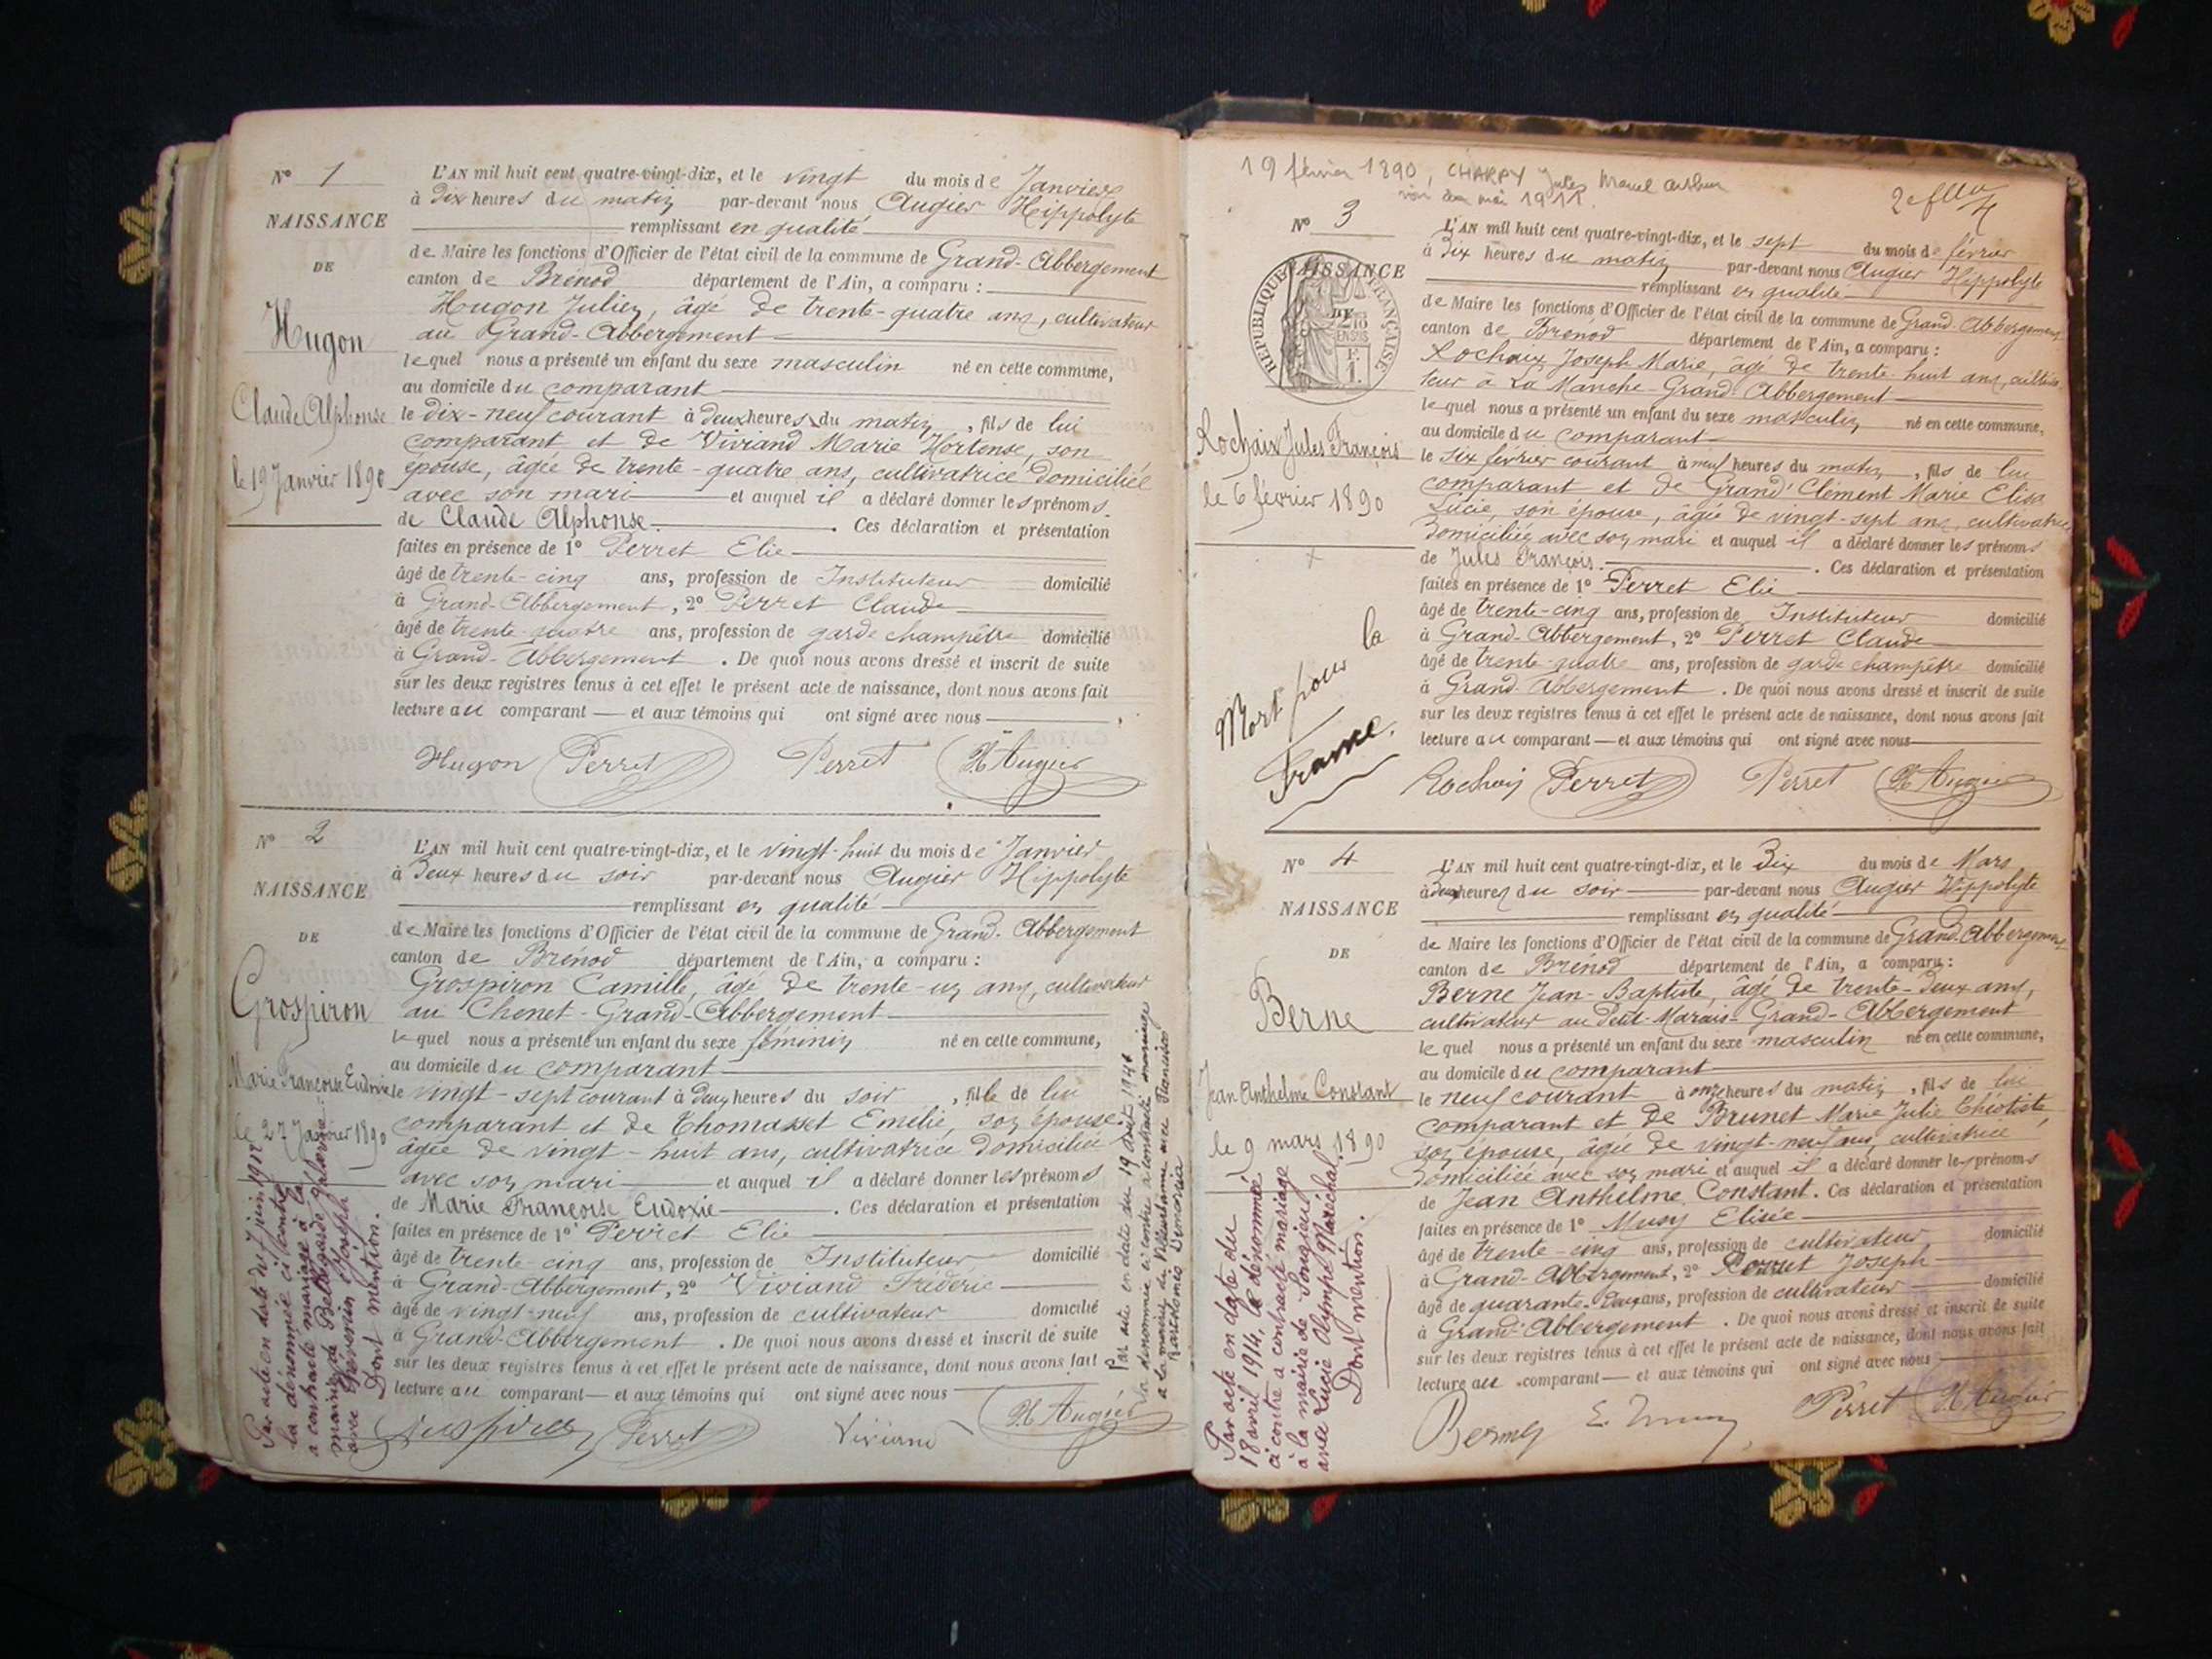 Nº 1
NAISSANCE
DE
Hugon
Claude Alphonse
le 19 Janvier 1890
L'AN mil huit cent quatre-vingt-dix, et le vingt du mois de Janvier
à Dix heures du matin par-devant nous Augier Hippolyte
remplissant en qualité
de Maire les fonctions d'Officier de l'état civil de la commune de Grand-Abbergement
canton de Brénod département de l'Ain, a comparu :
Hugon Julien, âgé de trente-quatre ans, cultivateur
au Grand-Abbergement
lequel nous a présenté un enfant du sexe masculin né en cette commune,
au domicile du comparant
le dix-neuf courant à deux heures du matin, fils de lui
comparant et de Viviand Marie Hortense, son
épouse, âgée de trente-quatre ans, cultivatrice domiciliée
avec son mari et auquel il a déclaré donner les prénoms
de Claude Alphonse. Ces déclaration et présentation
faites en présence de 1º Perret Elie
âgé de trente-cinq ans, profession de Instituteur domicilié
à Grand-Abbergement, 2º Perret Claude
âgé de trente-quatre ans, profession de garde champêtre domicilié
à Grand-Abbergement. De quoi nous avons dressé et inscrit de suite
sur les deux registres tenus à cet effet le présent acte de naissance, dont nous avons fait
lecture au comparant — et aux témoins qui ont signé avec nous
Hugon Perret Perret H Augier
Nº 2
NAISSANCE
DE
Grospiron
Marie Françoise Eudoxie
le 27 Janvier 1890
L'AN mil huit cent quatre-vingt-dix, et le vingt-huit du mois de Janvier
à Deux heures du soir par-devant nous Augier Hippolyte
remplissant en qualité
de Maire les fonctions d'Officier de l'état civil de la commune de Grand-Abbergement
canton de Brénod département de l'Ain, a comparu :
Grospiron Camille, âgé de trente-un ans, cultivateur
au Chenet-Grand-Abbergement
lequel nous a présenté un enfant du sexe féminin né en cette commune,
au domicile du comparant
le vingt-sept courant à deux heures du soir, fille de lui
comparant et de Thomasset Emélie, son épouse
âgée de vingt-huit ans, cultivatrice domiciliée
avec son mari et auquel il a déclaré donner les prénoms
de Marie Françoise Eudoxie. Ces déclaration et présentation
faites en présence de 1º Perret Elie
âgé de trente cinq ans, profession de Instituteur domicilié
à Grand-Abbergement, 2º Viviand Frédéric
âgé de vingt-neuf ans, profession de cultivateur domicilié
à Grand-Abbergement. De quoi nous avons dressé et inscrit de suite
sur les deux registres tenus à cet effet le présent acte de naissance, dont nous avons fait
lecture au comparant — et aux témoins qui ont signé avec nous
Perret Viviand H Augier
Par acte en date du 7 juin 1912
la dénommée ci contre
a contracté mariage à la
mairie de Bellegarde
avec Joseph
Dont mention.
Par acte en date du 19 1946
la dénommée ci contre a contracté mariage
à la mairie de Villeurbanne avec
19 février 1890, CHARPY Jules Marcel Arthur
voir mai 1911.
Nº 3
NAISSANCE
DE
REPUBLIQUE FRANÇAISE
Rochaix Jules François
le 6 février 1890
Mort pour la
France.
L'AN mil huit cent quatre-vingt-dix, et le sept du mois de février
à Dix heures du matin par-devant nous Augier Hippolyte
remplissant en qualité
de Maire les fonctions d'Officier de l'état civil de la commune de Grand-Abbergement
canton de Brénod département de l'Ain, a comparu :
Rochaix Joseph Marie, âgé de trente-huit ans, cultiva
teur à La Manche-Grand-Abbergement
lequel nous a présenté un enfant du sexe masculin né en cette commune,
au domicile du comparant
le six février courant à neuf heures du matin, fils de lui
comparant et de Grand'Clément Marie Elisa
Lucie, son épouse, âgée de vingt-sept ans, cultivatrice
domiciliée avec son mari et auquel il a déclaré donner les prénoms
de Jules François. Ces déclaration et présentation
faites en présence de 1º Perret Elie
âgé de trente-cinq ans, profession de Instituteur domicilié
à Grand-Abbergement, 2º Perret Claude
âgé de trente-quatre ans, profession de garde champêtre domicilié
à Grand-Abbergement. De quoi nous avons dressé et inscrit de suite
sur les deux registres tenus à cet effet le présent acte de naissance, dont nous avons fait
lecture au comparant — et aux témoins qui ont signé avec nous
Rochaix Perret Perret H Augier
Nº 4
NAISSANCE
DE
Berne
Jean Anthelme Constant
le 9 mars 1890
L'AN mil huit cent quatre-vingt-dix, et le Dix du mois de Mars
à Deux heures du soir par-devant nous Augier Hippolyte
remplissant en qualité
de Maire les fonctions d'Officier de l'état civil de la commune de Grand-Abbergement
canton de Brénod département de l'Ain, a comparu :
Berne Jean-Baptiste, âgé de trente-deux ans,
cultivateur au Petit-Marais-Grand-Abbergement
lequel nous a présenté un enfant du sexe masculin né en cette commune,
au domicile du comparant
le neuf courant à onze heures du matin, fils de lui
comparant et de Brunet Marie Julie Théotiste,
son épouse, âgée de vingt-neuf ans, cultivatrice
Domiciliée avec son mari et auquel il a déclaré donner les prénoms
de Jean Anthelme Constant. Ces déclaration et présentation
faites en présence de 1º Musy Elisée
âgé de trente-cinq ans, profession de cultivateur domicilié
à Grand-Abbergement, 2º Perret Joseph
âgé de quarante-deux ans, profession de cultivateur domicilié
à Grand-Abbergement. De quoi nous avons dressé et inscrit de suite
sur les deux registres tenus à cet effet le présent acte de naissance, dont nous avons fait
lecture au comparant — et aux témoins qui ont signé avec nous
Perret H Augier
Par acte en date du
18 avril 1914, le dénommé
ci contre a contracté mariage
à la mairie de Songieu
avec Lucie Olympe Maréchal.
Dont mention.